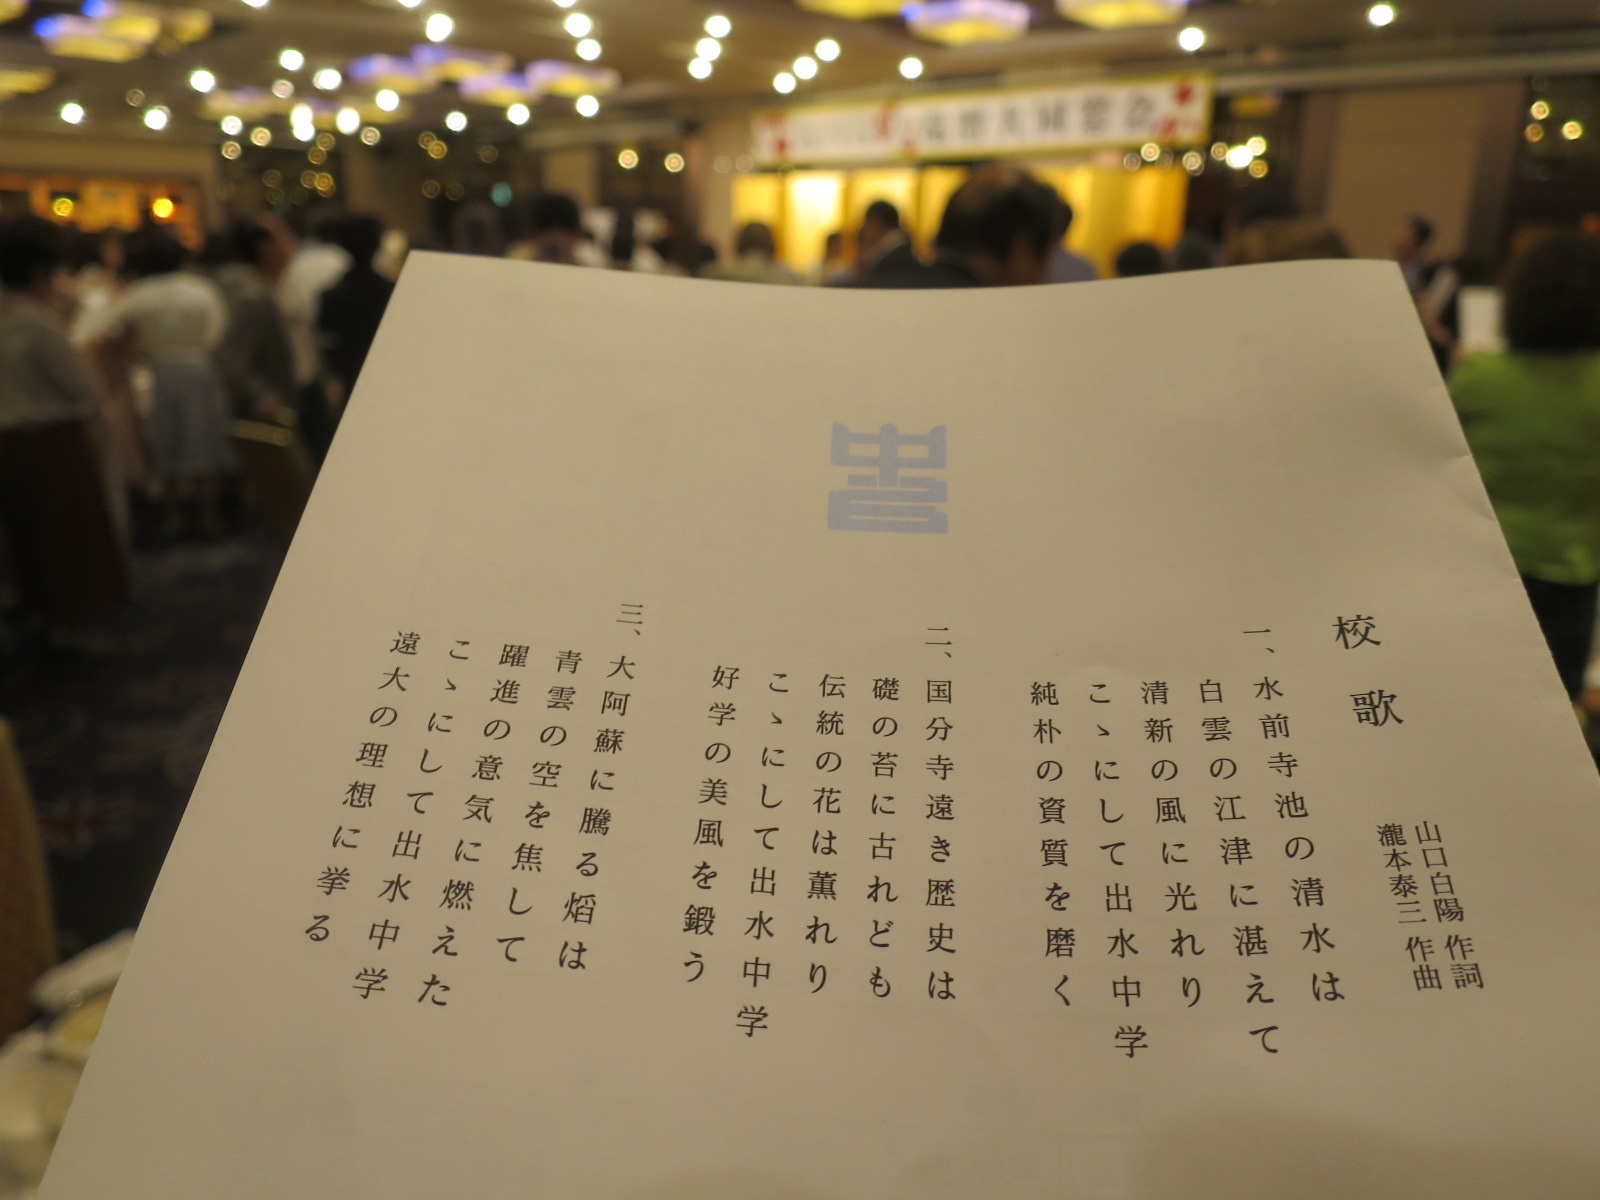 校歌
山口白陽 作詞
瀧本泰三 作曲
一、水前寺池の清水は
白雲の江津に湛えて
清新の風に光れり
こゝにして出水中学
純朴の資質を磨く
二、国分寺遠き歴史は
礎の苔に古れども
伝統の花は薫れり
こゝにして出水中学
好学の美風を鍛う
三、大阿蘇に騰る焰は
青雲の空を焦して
躍進の意気に燃えた
こゝにして出水中学
遠大の理想に挙る
大同窓会